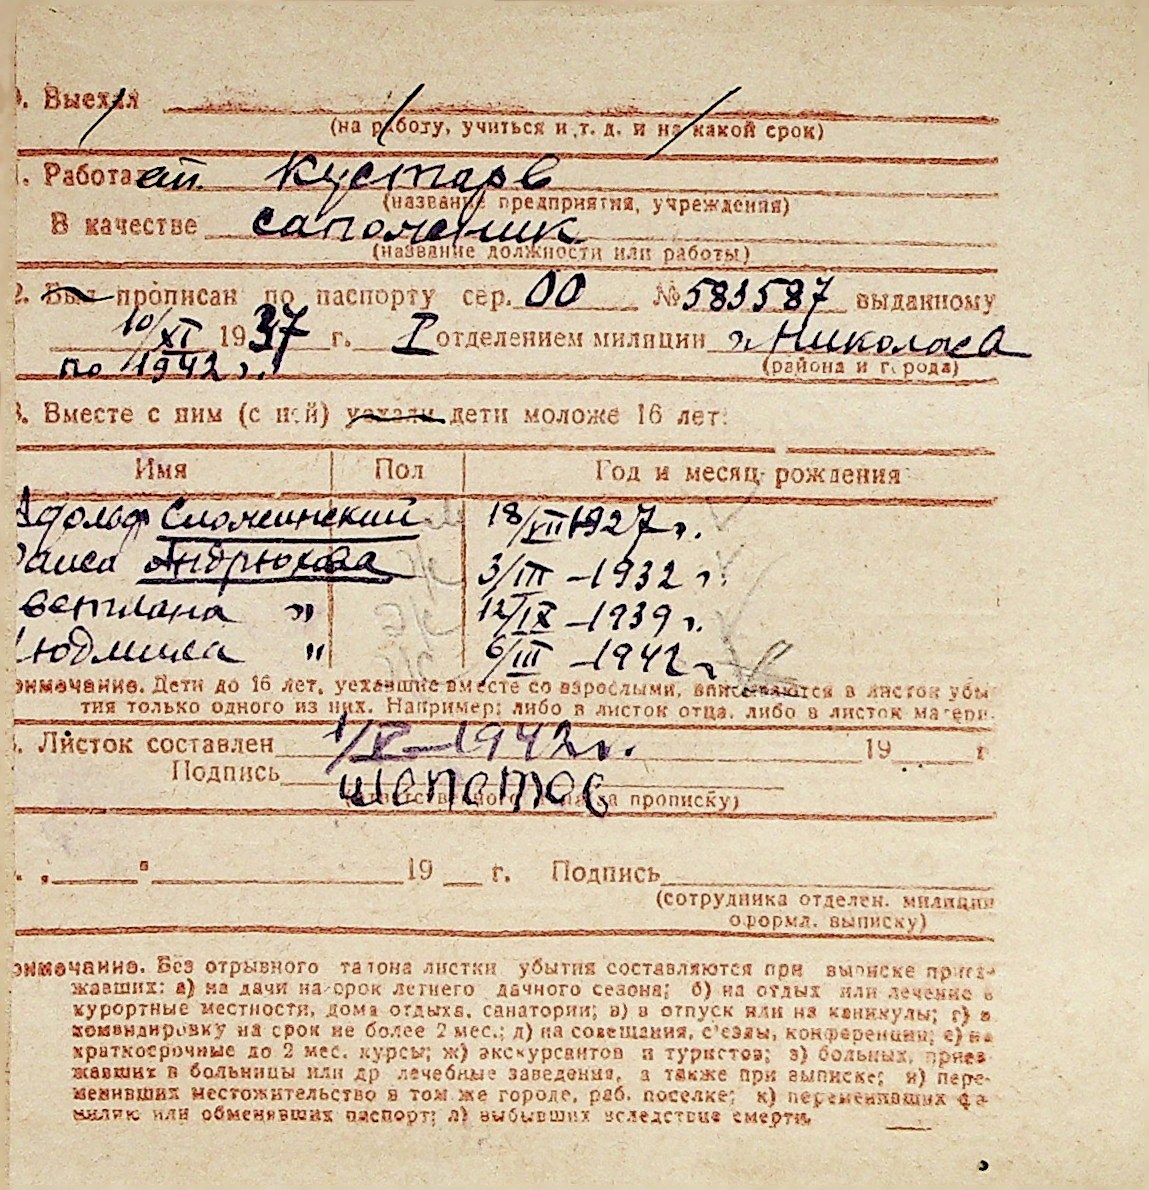 . Выехал
(на работу, учиться и т. д. и на какой срок)
. Работает Кустарь
(название предприятия, учреждения)
В качестве сапожник
(название должности или работы)
2. Был прописан по паспорту сер. 00 № 583587 выданному
10/XI 1937 г. I отделением милиции г. Николаева
по 1942 г. (района и города)
3. Вместе с ним (с ней) уехали дети моложе 16 лет:
Имя Пол Год и месяц рождения
Адольф Сложинский м 18/VII 1927 г.
аиса Андрюхова ж 3/III – 1932 г.
ветлана " ж 12/IX – 1939 г.
Людмила " ж 6/III – 1942 г.
римечание. Дети до 16 лет, уехавшие вместе со взрослыми, вписываются в листок убы-
тия только одного из них. Например: либо в листок отца, либо в листок матери.
. Листок составлен 1/V – 1942 г. 19 г
Подпись
прописку)
. „ " 19 г. Подпись
(сотрудника отделен. милиции
оформл. выписку)
римечание. Без отрывного талона листки убытия составляются при выписке приез-
жавших: а) на дачи на срок летнего дачного сезона; б) на отдых или лечение в
курортные местности, дома отдыха, санатории; в) в отпуск или на каникулы; г) в
командировку на срок не более 2 мес.; д) на совещания, с'езды, конференции; е) на
краткосрочные до 2 мес. курсы; ж) экскурсантов и туристов; з) больных, приез-
жавших в больницы или др лечебные заведения, а также при выписке; и) пере-
менивших местожительство в том же городе, раб. поселке; к) переменивших фа-
милию или обменявших паспорт; л) выбывших вследствие смерти.